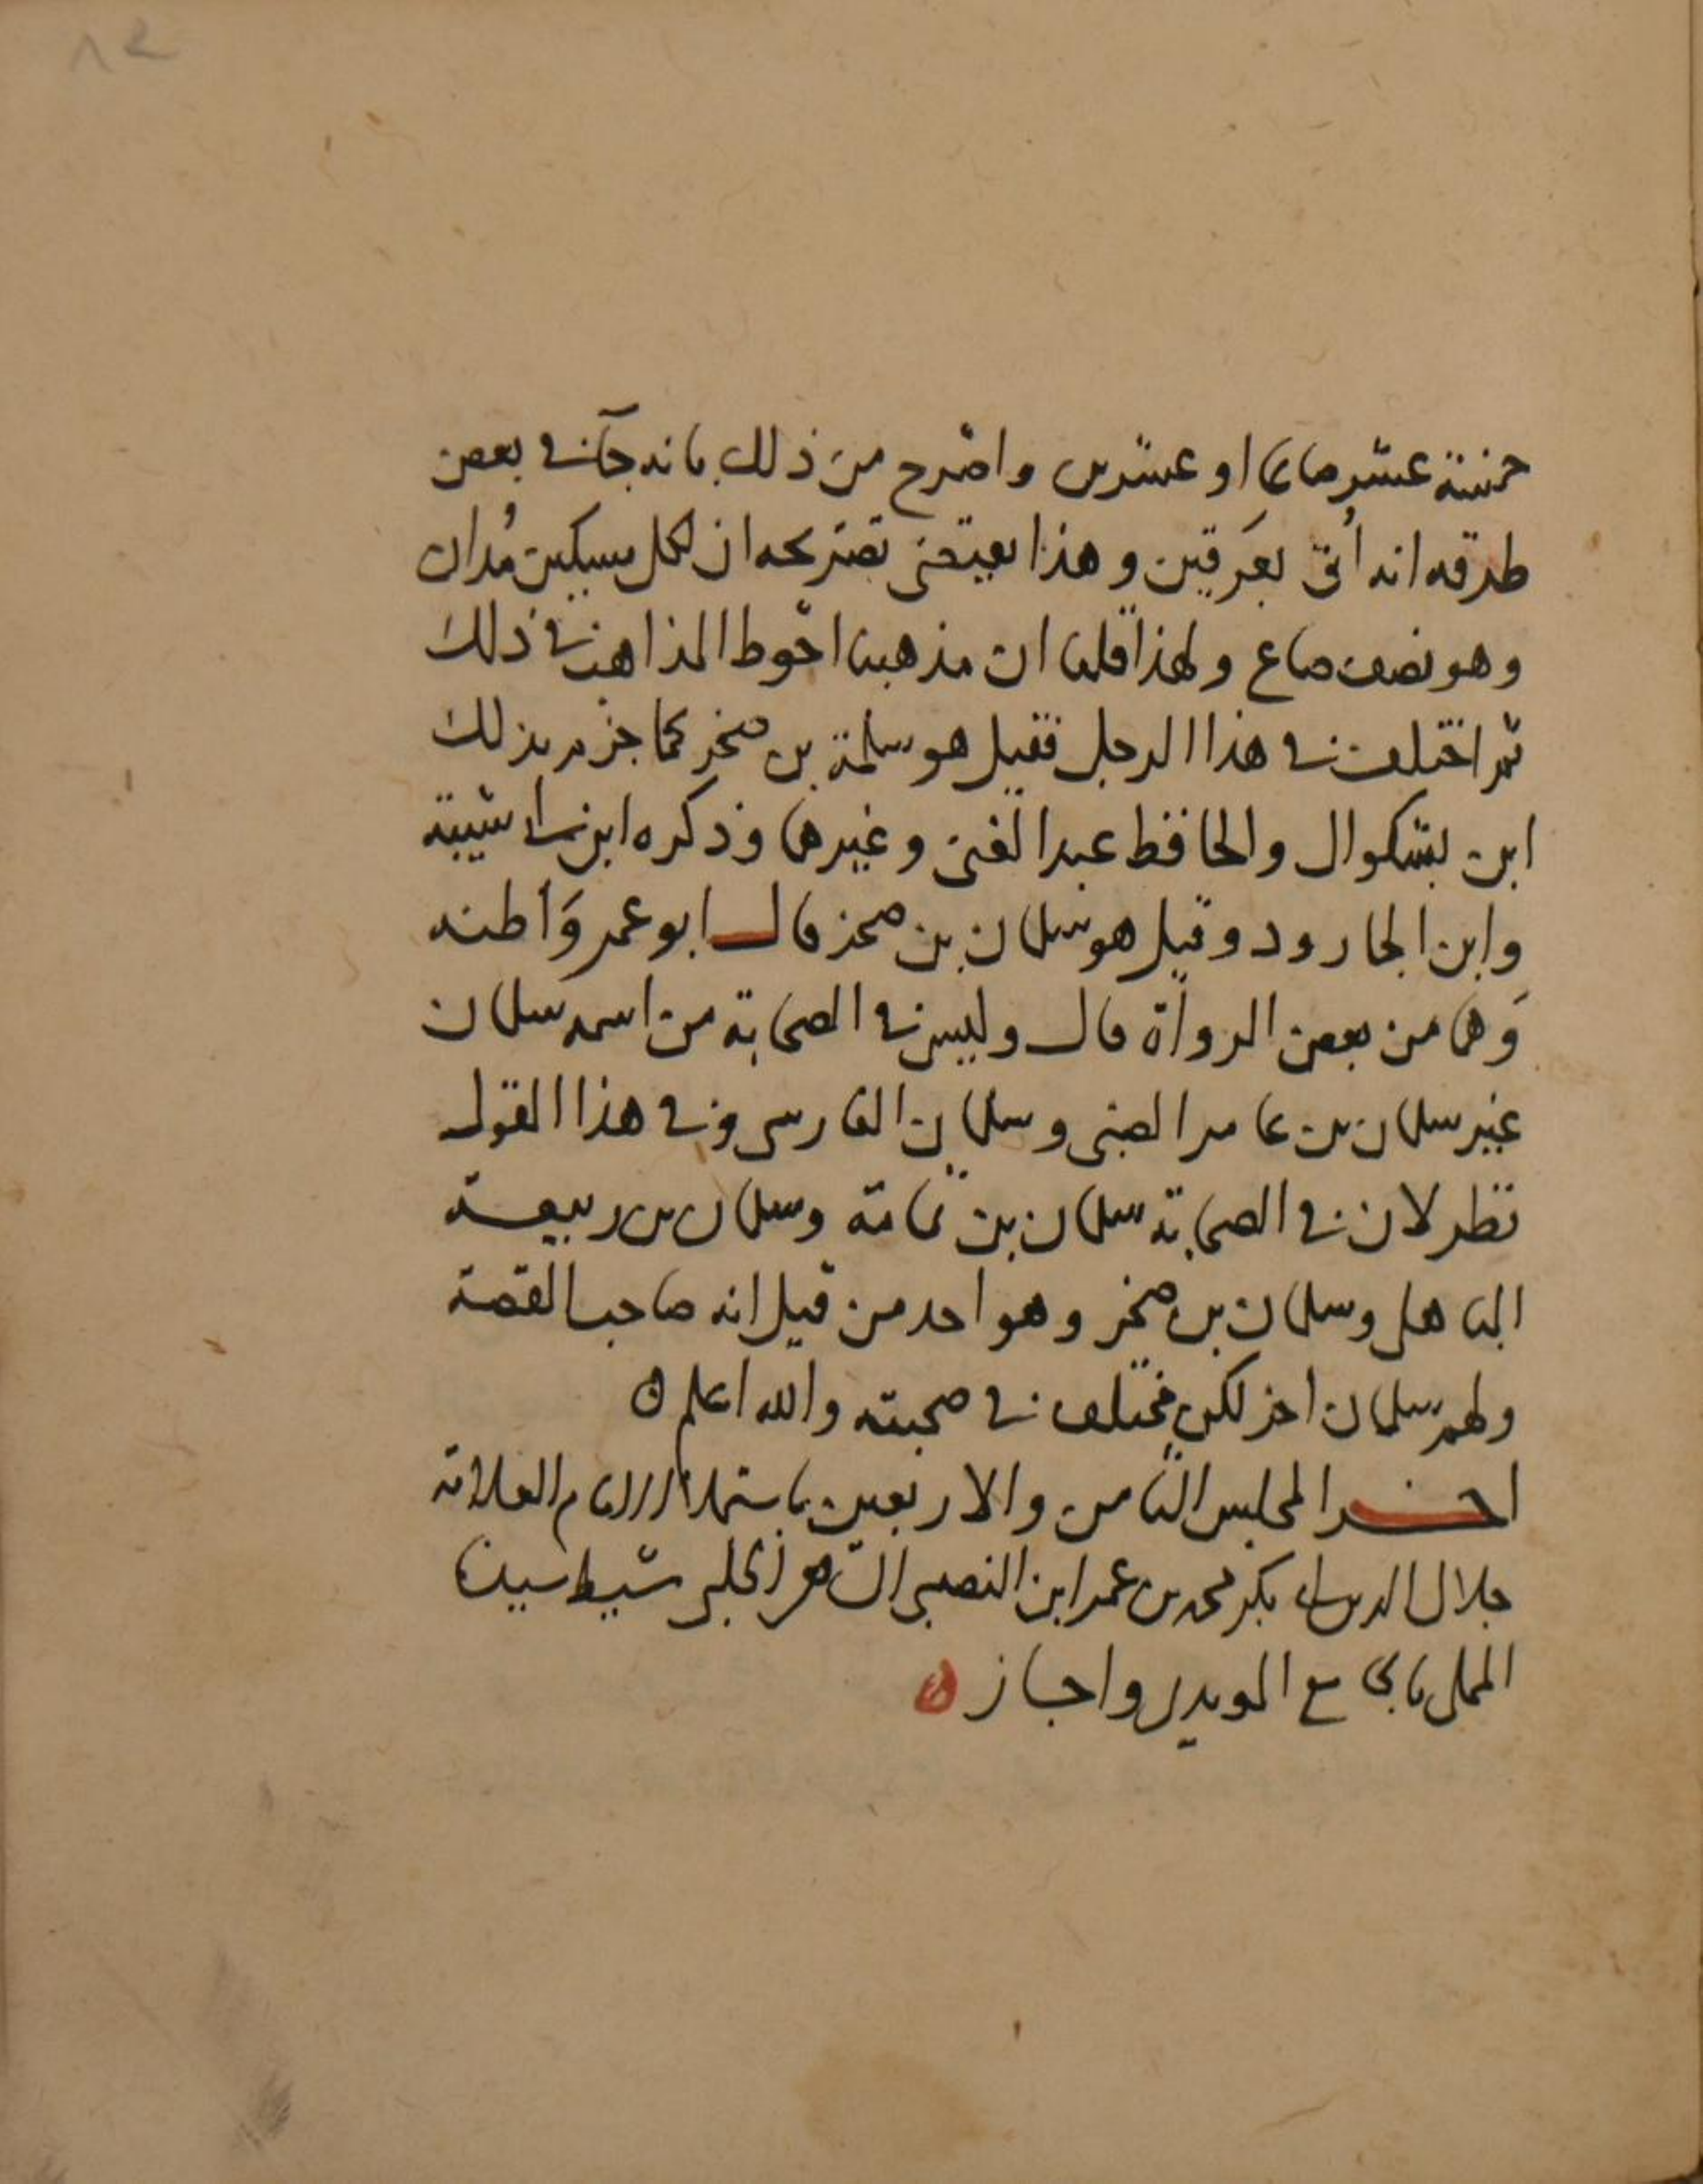 خمسة عشر صاعا او عشرين واصرح من ذلك بانه جآ في بعض
طرقه انه أتى بعَرقين وهذا يقتضى تصريحه ان لكل مسكين مُدان
وهو نصف صاع ولهذا قلنا ان مذهبنا احوط المذاهب في ذلك
ثم اختلف في هذا الرجل فقيل هو سلمة بن صخر كما جزم بذلك
ابن بشكوال والحافظ عبد الغنى وغيرهما وذكره ابن ابى شيبة
وابن الجارود وقيل هو سلمان بن صخر قال ابو عمر وَاظنه
وَهما من بعض الرواة قال وليس في الصحابة من اسمه سلمان
غير سلمان بن عامر الضبى وسلمان الفارسى وفي هذا القول
نظر لان في الصحابة سلمان بن ثمامة وسلمان بن ربيعة
الباهلى وسلمان بن صخر وهو احد من قيل انه صاحب القصة
ولهم سلمان اخر لكن مختلف في صحبته والله اعلم ه
اخر المجلس الثامن والاربعين باستملاء الامام العلامة
جلال الدين ابى بكر محمد بن عمر ابن النصيبى الحلبى سبط سيدنا
المملى بالجامع المويدى واجاز ه